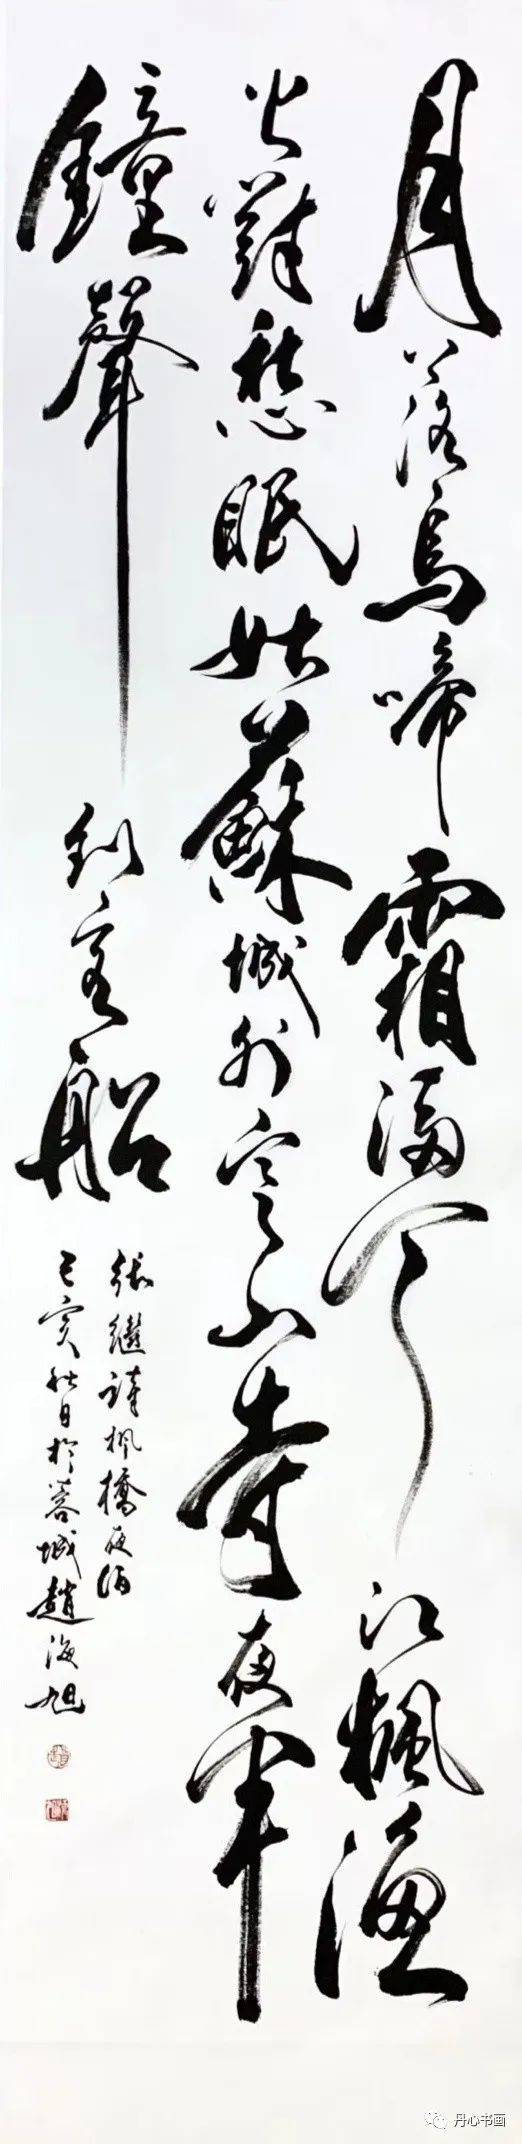 月落烏啼霜滿天江楓漁
火對愁眠姑蘇城外寒山寺夜半
鐘聲到客船
張繼詩楓橋夜泊
己亥秋日於蓉城趙海旭
丹心书画